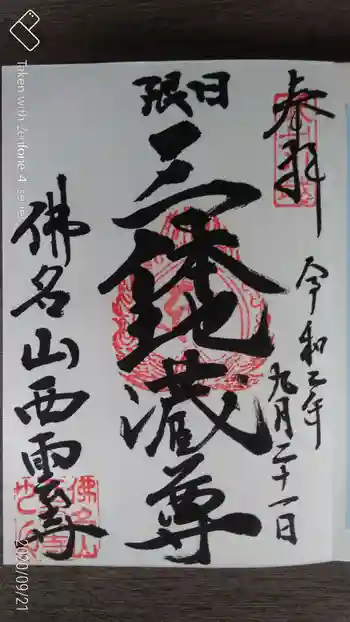 奉拝
令和二年
九月二十一日
日限
三体地蔵尊
佛名山西雲寺
佛名山
Taken with Zenfone 4 series
2020/09/21